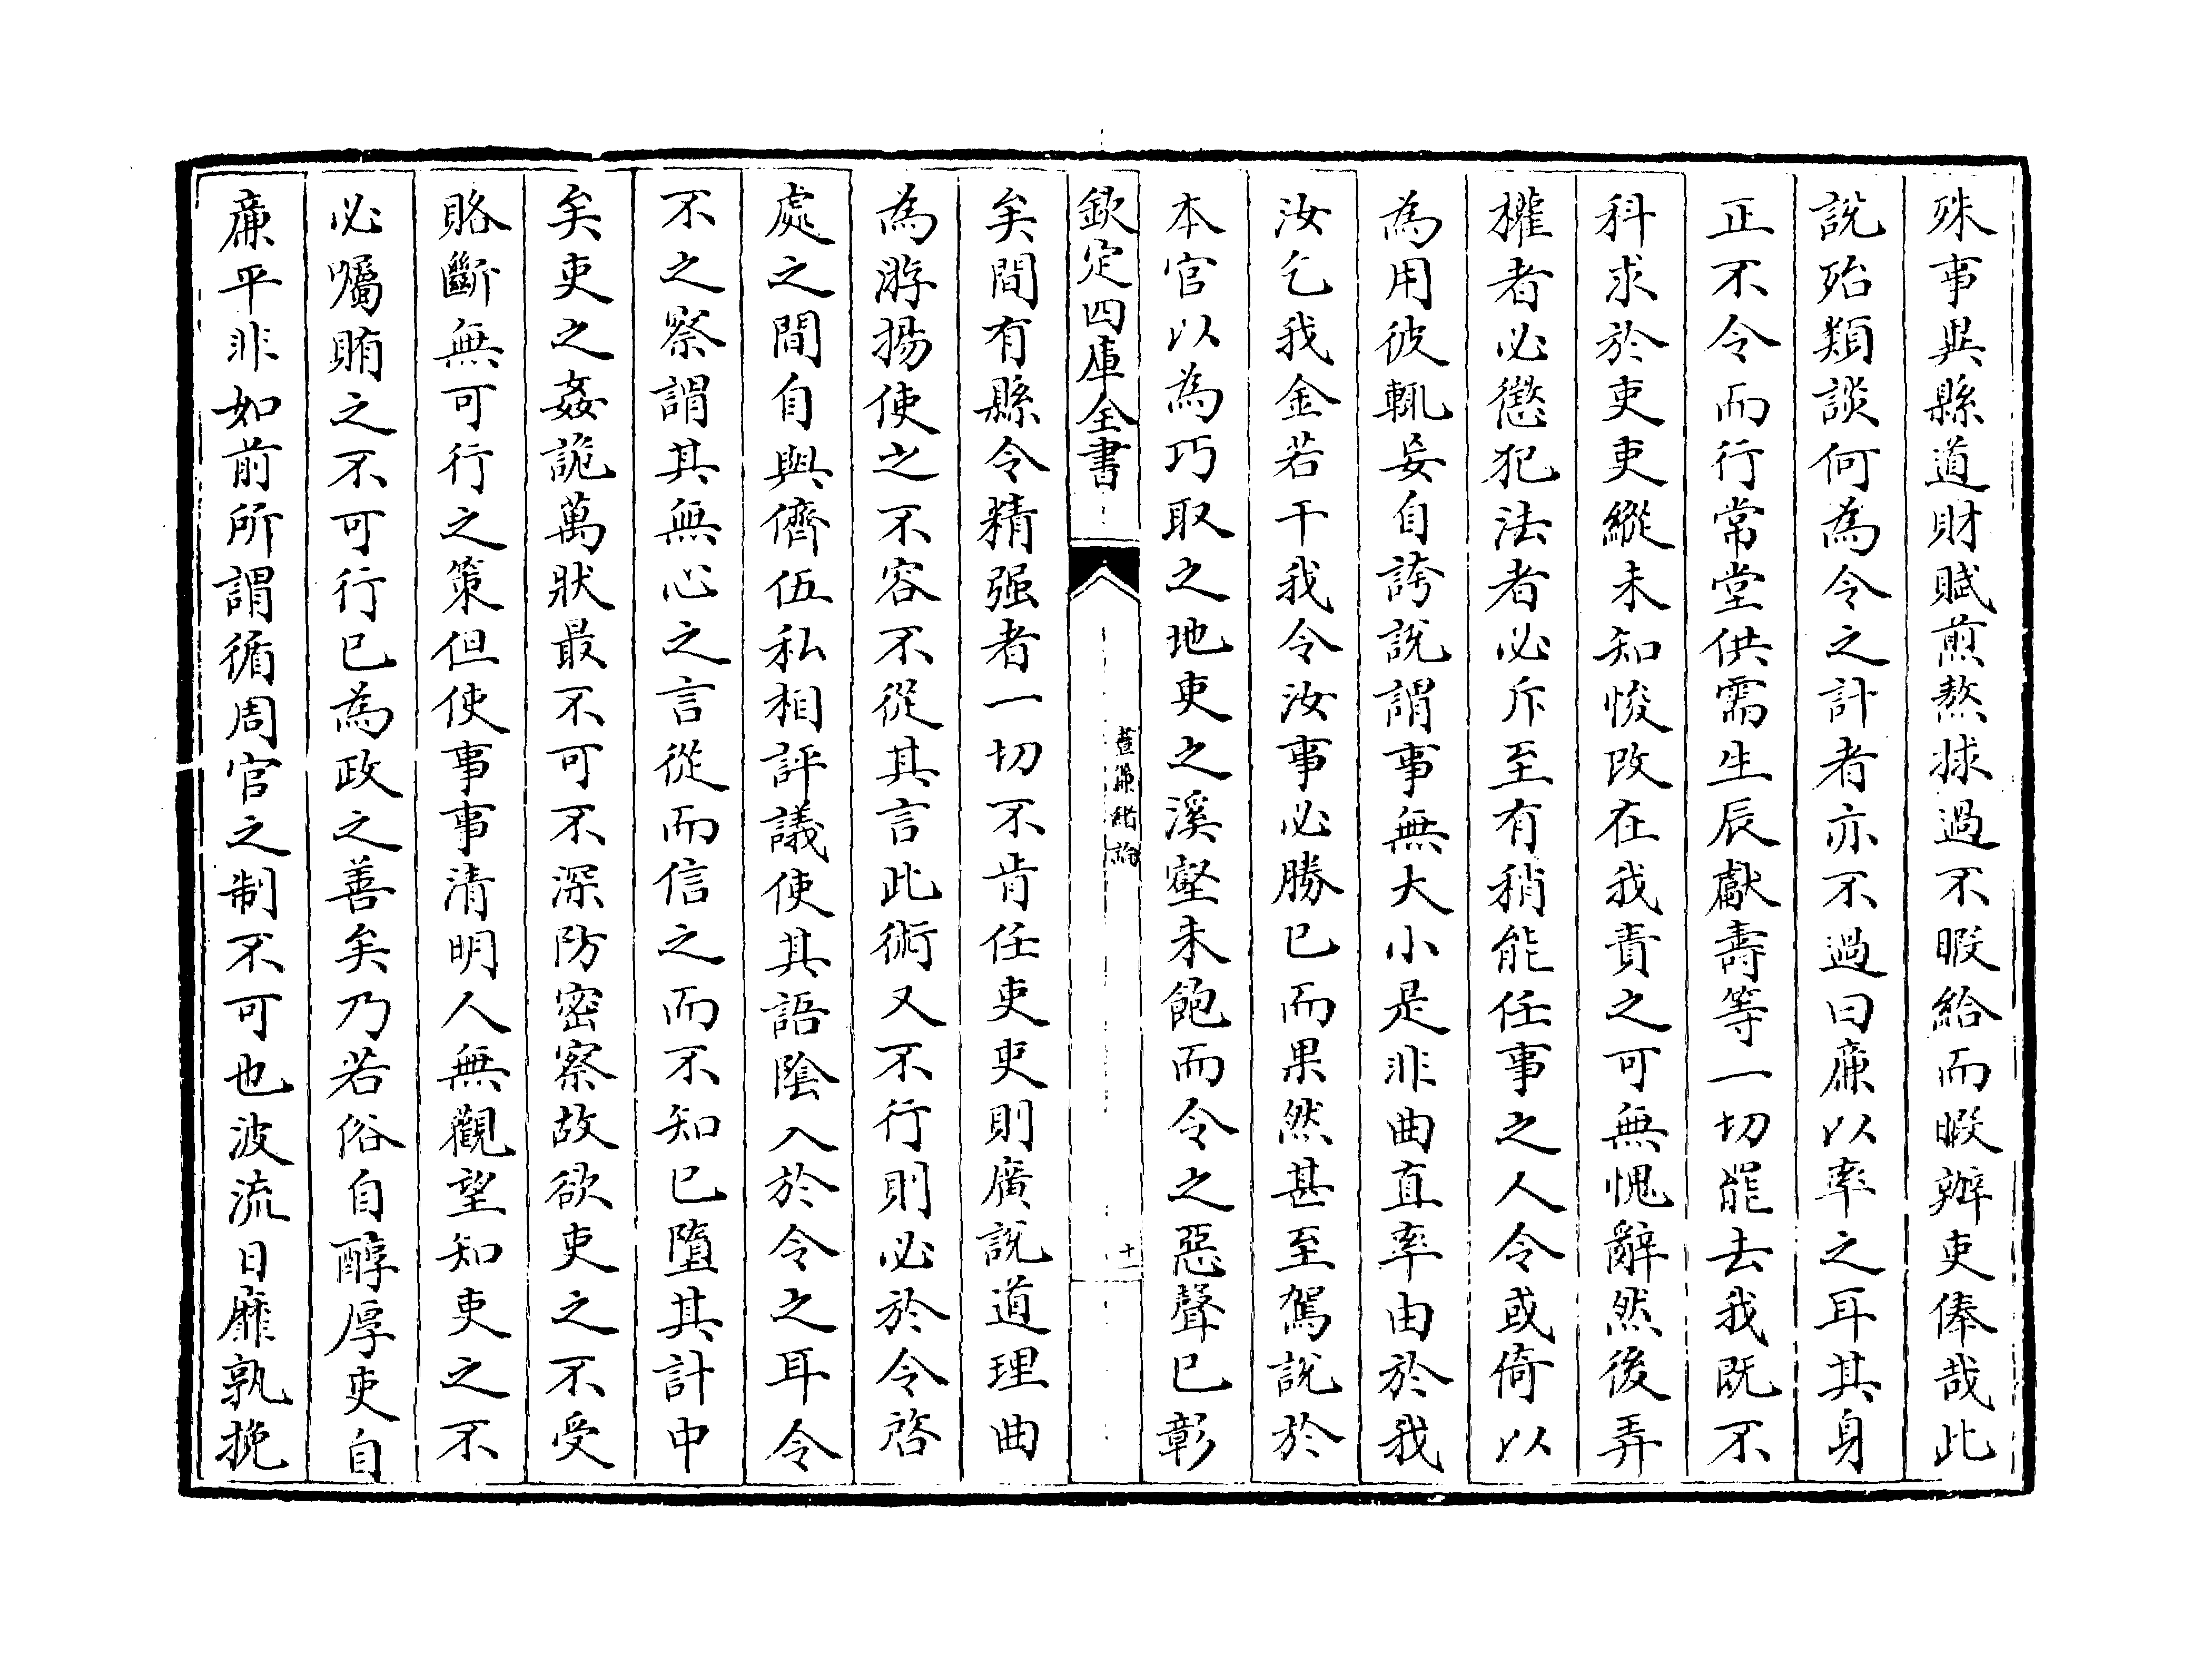 殊事異縣道財賦煎熬捄過不暇給而暇辦吏俸哉此
說殆類談何為令之計者亦不過曰廉以率之耳其身
正不令而行常堂供需生辰獻壽等一切罷去我既不
科求於吏吏縱未知悛改在我責之可無愧辭然後弄
權者必懲犯法者必斥至有稍能任事之人令或倚以
為用彼輒妄自誇說謂事無大小是非曲直率由於我
汝乞我金若干我令汝事必勝已而果然甚至駕說於
本官以為巧取之地吏之溪壑未飽而令之惡聲已彰
欽定四庫全書
晝簾緒論
十一
矣間有縣令精强者一切不肯任吏吏則廣說道理曲
為游揚使之不容不從其言此術又不行則必於令啓
處之間自與儕伍私相評議使其語陰入於令之耳令
不之察謂其無心之言從而信之而不知已墮其計中
矣吏之姦詭萬狀最不可不深防密察故欲吏之不受
賂斷無可行之策但使事事清明人無觀望知吏之不
必囑賄之不可行已為政之善矣乃若俗自醇厚吏自
廉平非如前所謂循周官之制不可也波流日靡孰挽